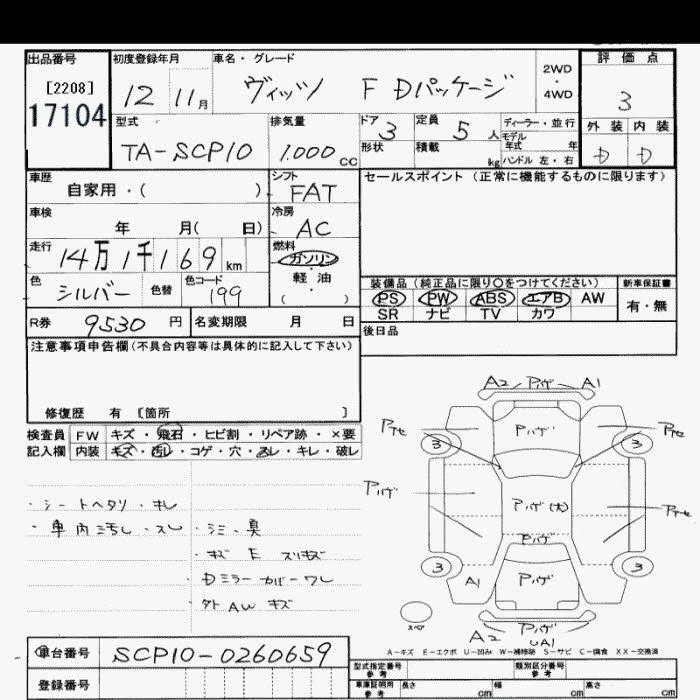 出品番号 初度登録年月 車名・グレード 2WD・4WD 評価点
[2208] 17104 12 11月 ヴィッツ F Dパッケージ 3
型式 排気量 ドア 3 定員 5人 ディーラー・並行 外装 内装
モデル年式 年
TA-SCP10 1.000cc 形状 積載 kg ハンドル 左・右 D D
車歴 自家用・( ) シフト FAT セールスポイント (正常に機能するものに限ります)
車検 年 月( 日) 冷房 AC
走行 14万1千169km 燃料 ガソリン・軽油・( )
色 シルバー 色替 色コード 199
装備品 (純正品に限り○をつけてください) 新車保証書
PS PW ABS エアB AW 有・無
SR ナビ TV カワ
R券 9530円 名変期限 月 日 後日品
注意事項申告欄(不具合内容等は具体的に記入して下さい)
修復歴 有 〔箇所 〕
検査員 FW キズ・飛石・ヒビ割・リペア跡・×要
記入欄 内装 キズ・汚し・コゲ・穴・スレ・キレ・破レ
・シートヘタリ・キレ
・車内汚し・スレ・シミ・臭
・キズ E スリキズ
・Dミラーカバーワレ
タト AW キズ
A2 Pハゲ A1
Pハゲ
3 3
Pハゲ Pハゲ(大)
Pハゲ
3 3
A1 Pハゲ
スペア A2 Pハゲ UA1
A-キズ E-エクボ U-凹み W-補修跡 S-サビ C-腐食 XX-交換済
車台番号 SCP10-0260659
登録番号
型式指定番号 参考 類別区分番号 参考
車庫証明用 参考 長さ cm 幅 cm 高さ cm